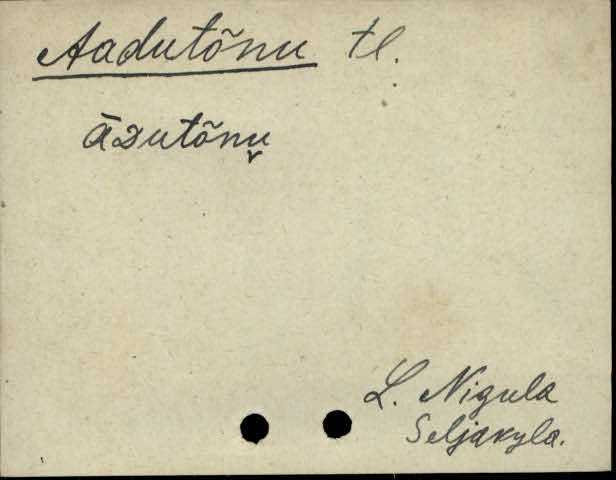 Aadutõnu tl.
āᴅutõnu̬
L. Nigula
Seljakyla.